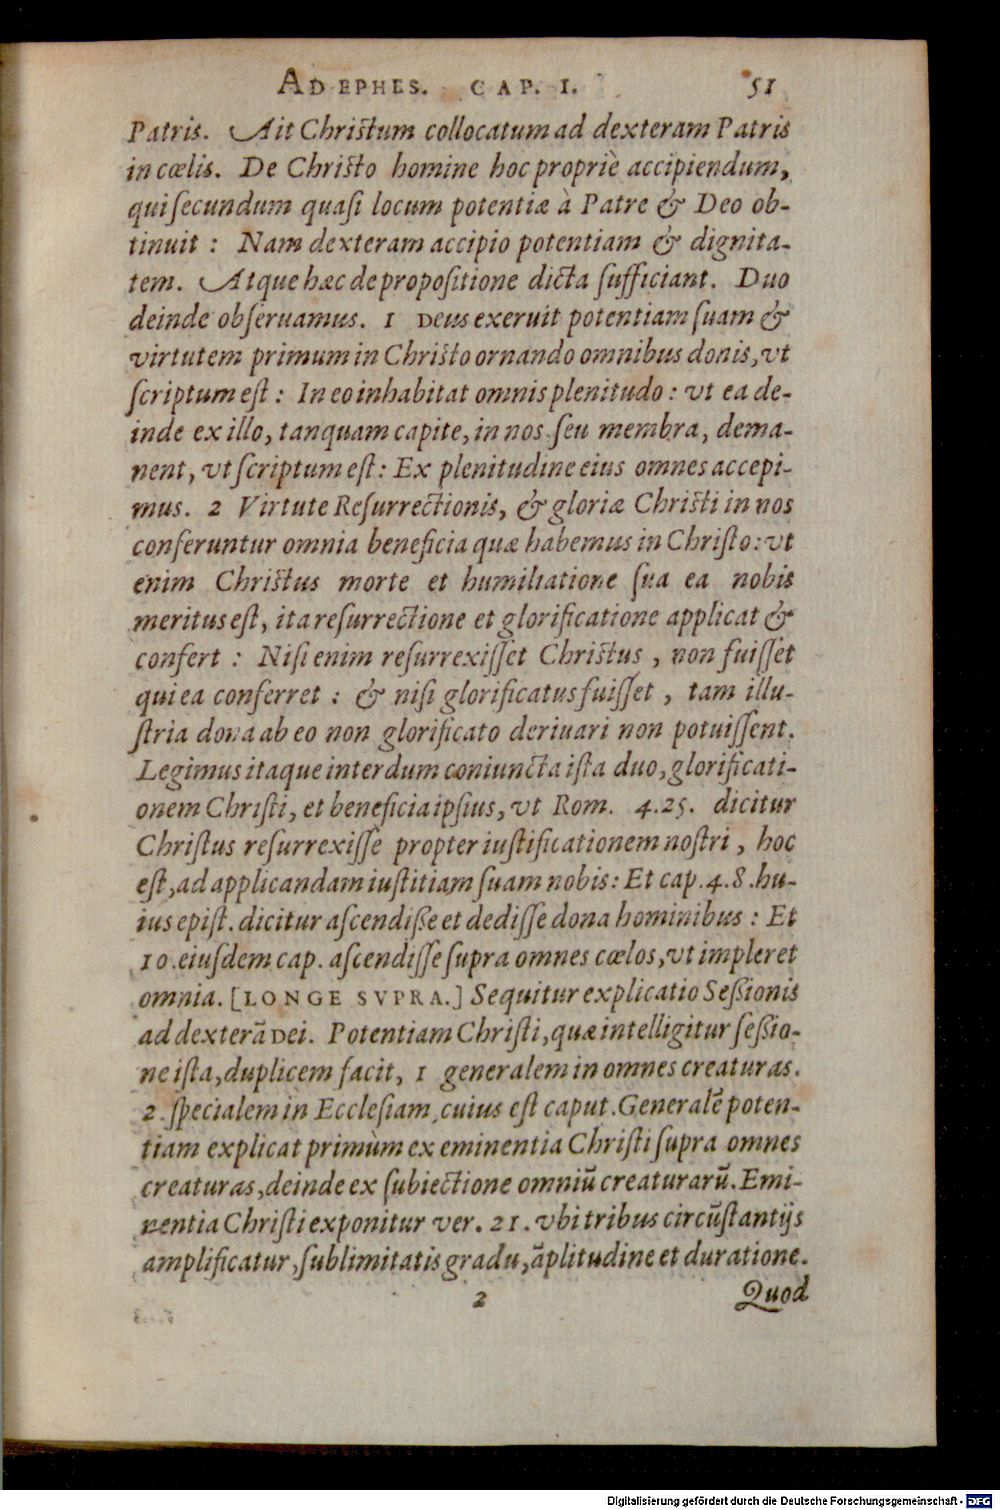 AD EPHES. CAP. I. 51
Patris. Ait Christum collocatum ad dexteram Patris
in cœlis. De Christo homine hoc propriè accipiendum,
qui secundum quasi locum potentiæ à Patre & Deo ob-
tinuit : Nam dexteram accipio potentiam & dignita-
tem. Atque hæc de propositione dicta sufficiant. Duo
deinde obseruamus. 1 DEus exeruit potentiam suam &
virtutem primum in Christo ornando omnibus donis, vt
scriptum est : In eo inhabitat omnis plenitudo : vt ea de-
inde ex illo, tanquam capite, in nos seu membra, dema-
nent, vt scriptum est: Ex plenitudine eius omnes accepi-
mus. 2 Virtute Resurrectionis, & gloriæ Christi in nos
conferuntur omnia beneficia quæ habemus in Christo: vt
enim Christus morte et humiliatione sua ea nobis
meritus est, ita resurrectione et glorificatione applicat &
confert : Nisi enim resurrexisset Christus , non fuisset
qui ea conferret : & nisi glorificatus fuisset , tam illu-
stria dona ab eo non glorificato deriuari non potuissent.
Legimus itaque interdum coniuncta ista duo, glorificati-
onem Christi, et beneficia ipsius, vt Rom. 4.25. dicitur
Christus resurrexisse propter iustificationem nostri , hoc
est, ad applicandam iustitiam suam nobis: Et cap. 4.8. hu-
ius epist. dicitur ascendiße et dedisse dona hominibus : Et
10. eiusdem cap. ascendisse supra omnes cœlos, vt impleret
omnia. [LONGE SVPRA.] Sequitur explicatio Seßionis
ad dexterā DEi. Potentiam Christi, quæ intelligitur seßio-
ne ista, duplicem facit, 1 generalem in omnes creaturas.
2. specialem in Ecclesiam, cuius est caput. Generalē poten-
tiam explicat primùm ex eminentia Christi supra omnes
creaturas, deinde ex subiectione omniū creaturarū. Emi-
nentia Christi exponitur ver. 21. vbi tribus circūstantijs
amplificatur, sublimitatis gradu, āplitudine et duratione.
2 Quod
Digitalisierung gefördert durch die Deutsche Forschungsgemeinschaft - DFG